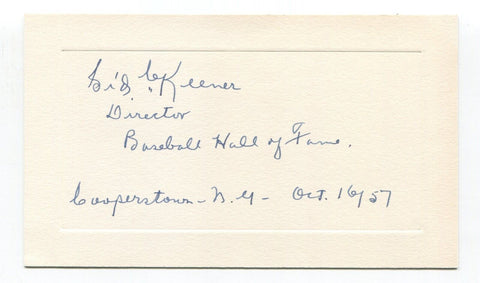 Sid C. Keener
Director
Baseball Hall of Fame.
Cooperstown - N.Y - Oct. 16/57